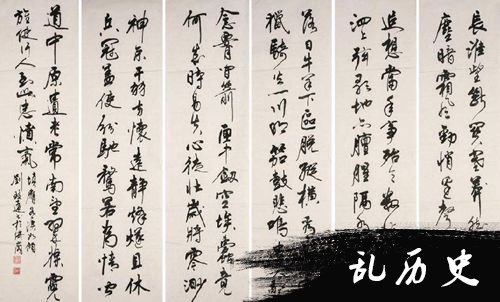 長淮望斷關塞莽然
塵暗霜風勁悄邊聲
追想當年事殆天數
泗上弦歌地亦膻腥隔水
落日牛羊下區脫縱橫看
獵騎火一川明笳鼓悲鳴
念腰間箭匣中劍空埃蠹竟
何成時易失心徒壯歲將零渺
神京干羽方懷遠靜烽燧且休
兵冠蓋使紛馳騖若為情聞
道中原遺老常南望翠葆霓
旌使行人到此忠憤氣填膺有淚如傾
乱历史